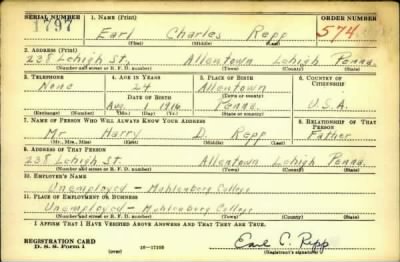 SERIAL NUMBER 1. NAME (Print) ORDER NUMBER
1797 Earl Charles Repp 574
(First) (Middle) (Last)
2. ADDRESS (Print)
238 Lehigh St. Allentown Lehigh Penna.
(Number and street or R. F. D. number) (Town) (County) (State)
3. TELEPHONE 4. AGE IN YEARS 5. PLACE OF BIRTH 6. COUNTRY OF CITIZENSHIP
None 24 Allentown
DATE OF BIRTH (Town or county)
Aug. 1 1916 Penna. U.S.A.
(Exchange) (Number) (Mo.) (Day) (Yr.) (State or country)
7. NAME OF PERSON WHO WILL ALWAYS KNOW YOUR ADDRESS 8. RELATIONSHIP OF THAT PERSON
Mr Harry D. Repp Father
(Mr., Mrs., Miss) (First) (Middle) (Last)
9. ADDRESS OF THAT PERSON
238 Lehigh St. Allentown Lehigh Penna.
(Number and street or R. F. D. number) (Town) (County) (State)
10. EMPLOYER'S NAME
Unemployed - Muhlenberg College
11. PLACE OF EMPLOYMENT OR BUSINESS
Unemployed - Muhlenberg College
(Number and street or R. F. D. number) (Town) (County) (State)
I AFFIRM THAT I HAVE VERIFIED ABOVE ANSWERS AND THAT THEY ARE TRUE.
REGISTRATION CARD Earl C. Repp
D. S. S. Form 1 (over) 16-17105 (Registrant's signature)